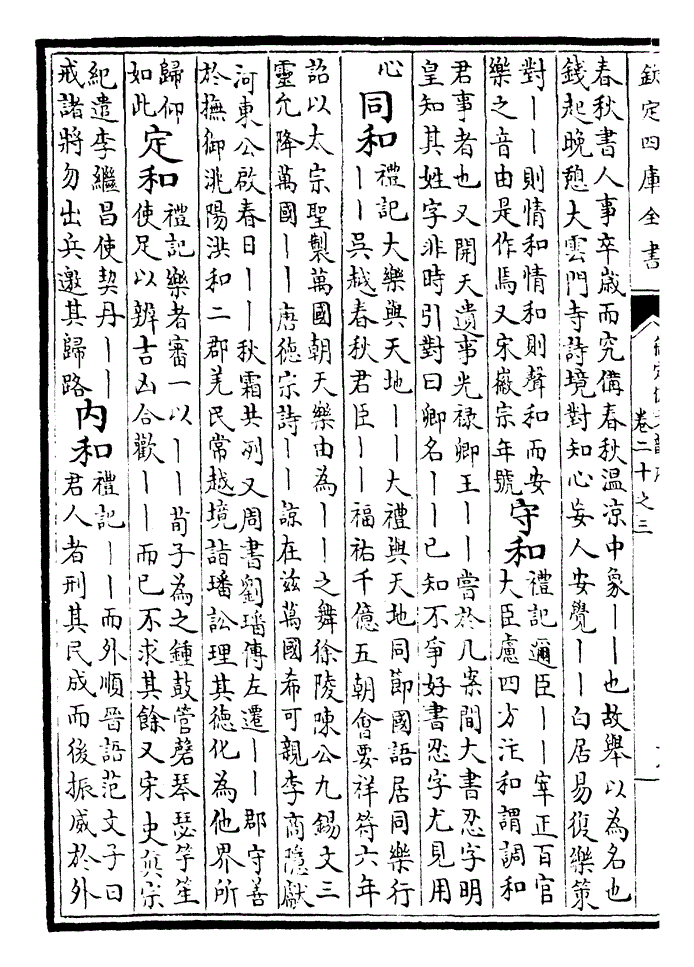 欽定四庫全書
卷二十之三
春秋書人事卒歲而究備春秋溫涼中象丨丨也故舉以為名也
錢起晚憩大雲門寺詩境對知心妄人安覺丨丨白居易復樂策
對丨丨則情和情和則聲和而安
樂之音由是作焉又宋徽宗年號
守和
禮記邇臣丨丨宰正百官
大臣慮四方注和謂調和
君事者也又開天遺事光祿卿王丨丨嘗於几案間大書忍字明
皇知其姓字非時引對曰卿名丨丨已知不爭好書忍字尤見用
心
同和
禮記大樂與天地丨丨大禮與天地同節國語居同樂行
丨丨吳越春秋君臣丨丨福祐千億五朝會要祥符六年
詔以太宗聖製萬國朝天樂由為丨丨之舞徐陵陳公九錫文三
靈允降萬國丨丨唐德宗詩丨丨諒在茲萬國希可親李商隱獻
河東公啟春日丨丨秋霜共冽又周書劉璠傳左遷丨丨郡守善
於撫御洮陽洪和二郡羌民常越境詣璠訟理其德化為他界所
歸仰
如此
定和
禮記樂者審一以丨丨荀子為之鍾鼓管磬琴瑟竽笙
使足以辨吉凶合歡丨丨而已不求其餘又宋史真宗
紀遣李繼昌使契丹丨丨
戒諸將勿出兵邀其歸路
內和
禮記丨丨而外順晉語范文子曰
君人者刑其民成而後振威於外